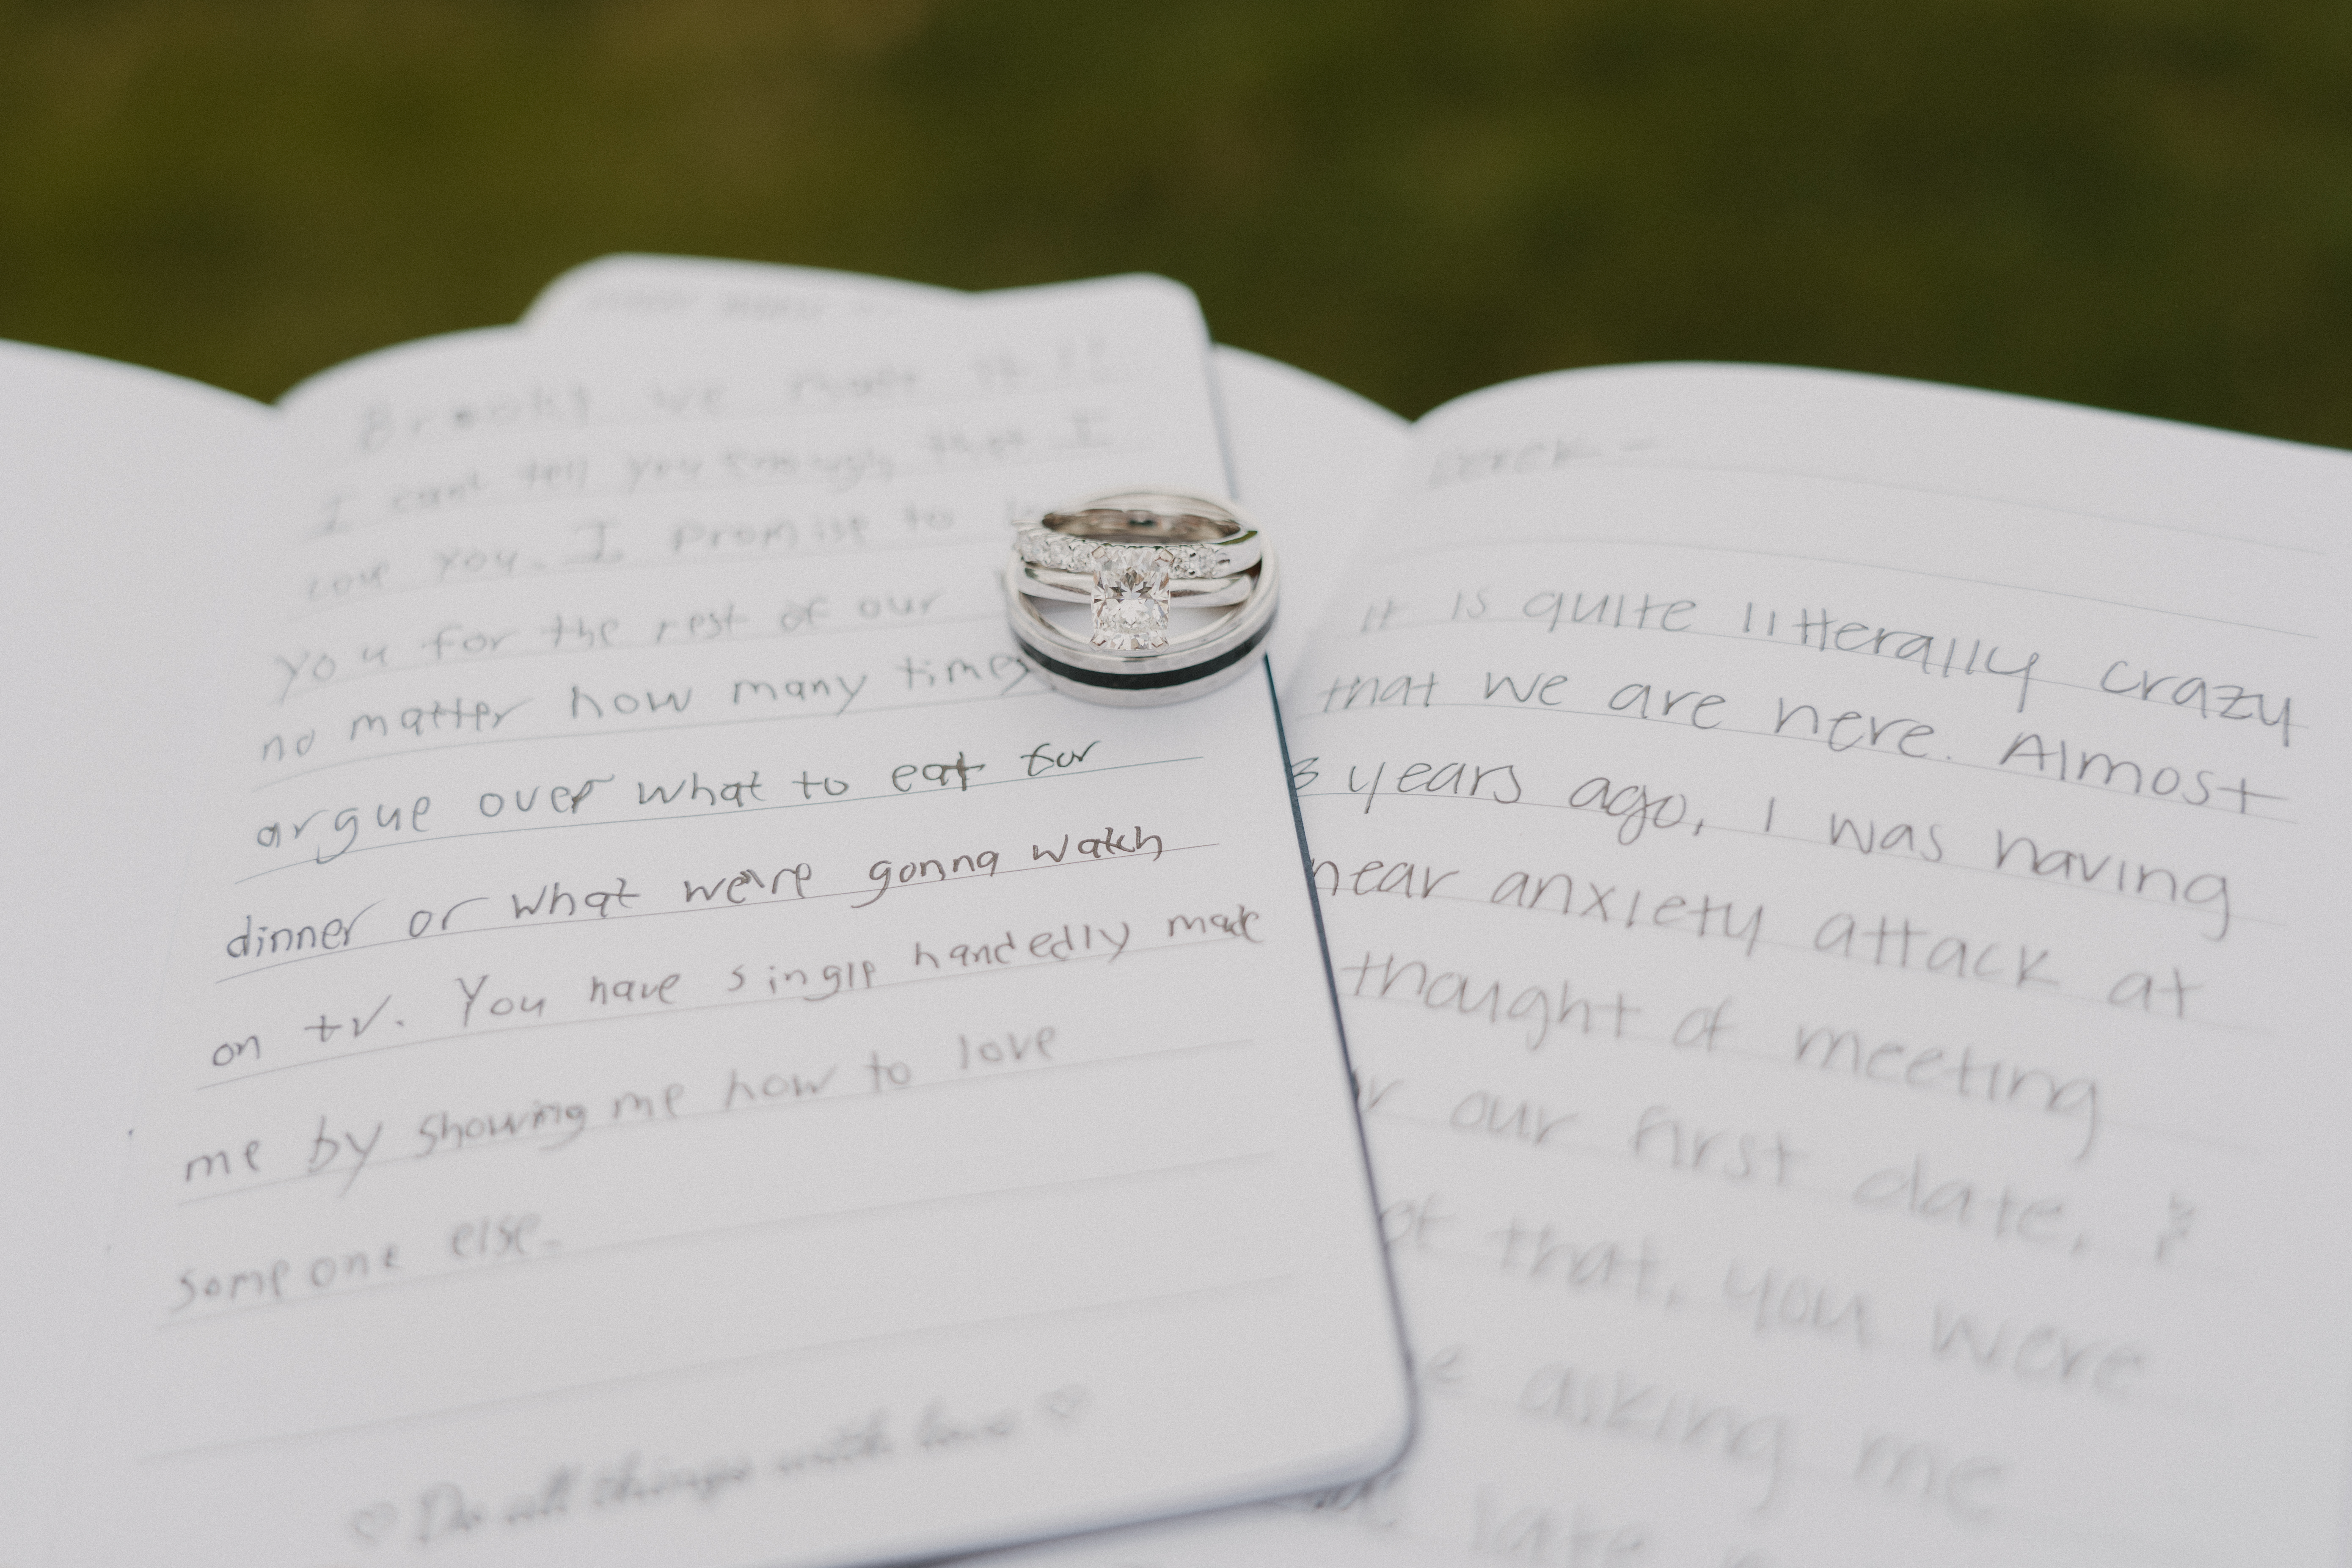 we made it!!
I can't tell you enough that I
love you. I promise to
you for the rest of our
no matter how many times
argue over what to eat for
dinner or what we're gonna watch
on tv. You have single handedly made
me by showing me how to love
someone else.
♡ Do all things with love ♡
DEREK -
It is quite litterally crazy
that we are here. Almost
3 years ago, I was having
near anxiety attack at
thought of meeting
our first date,
that, you were
asking me
late